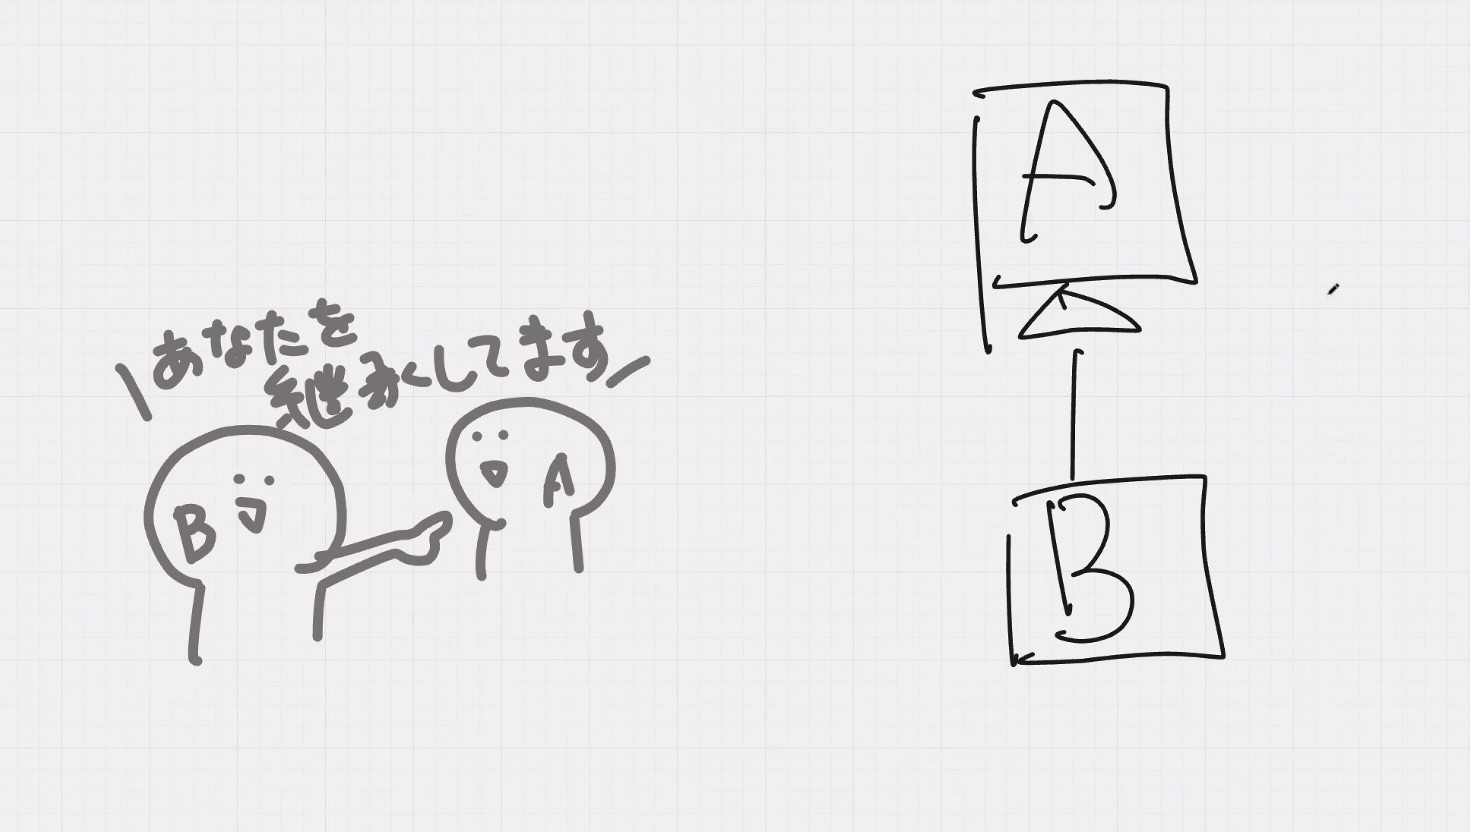 あなたを
継承してます
B
A
A
B